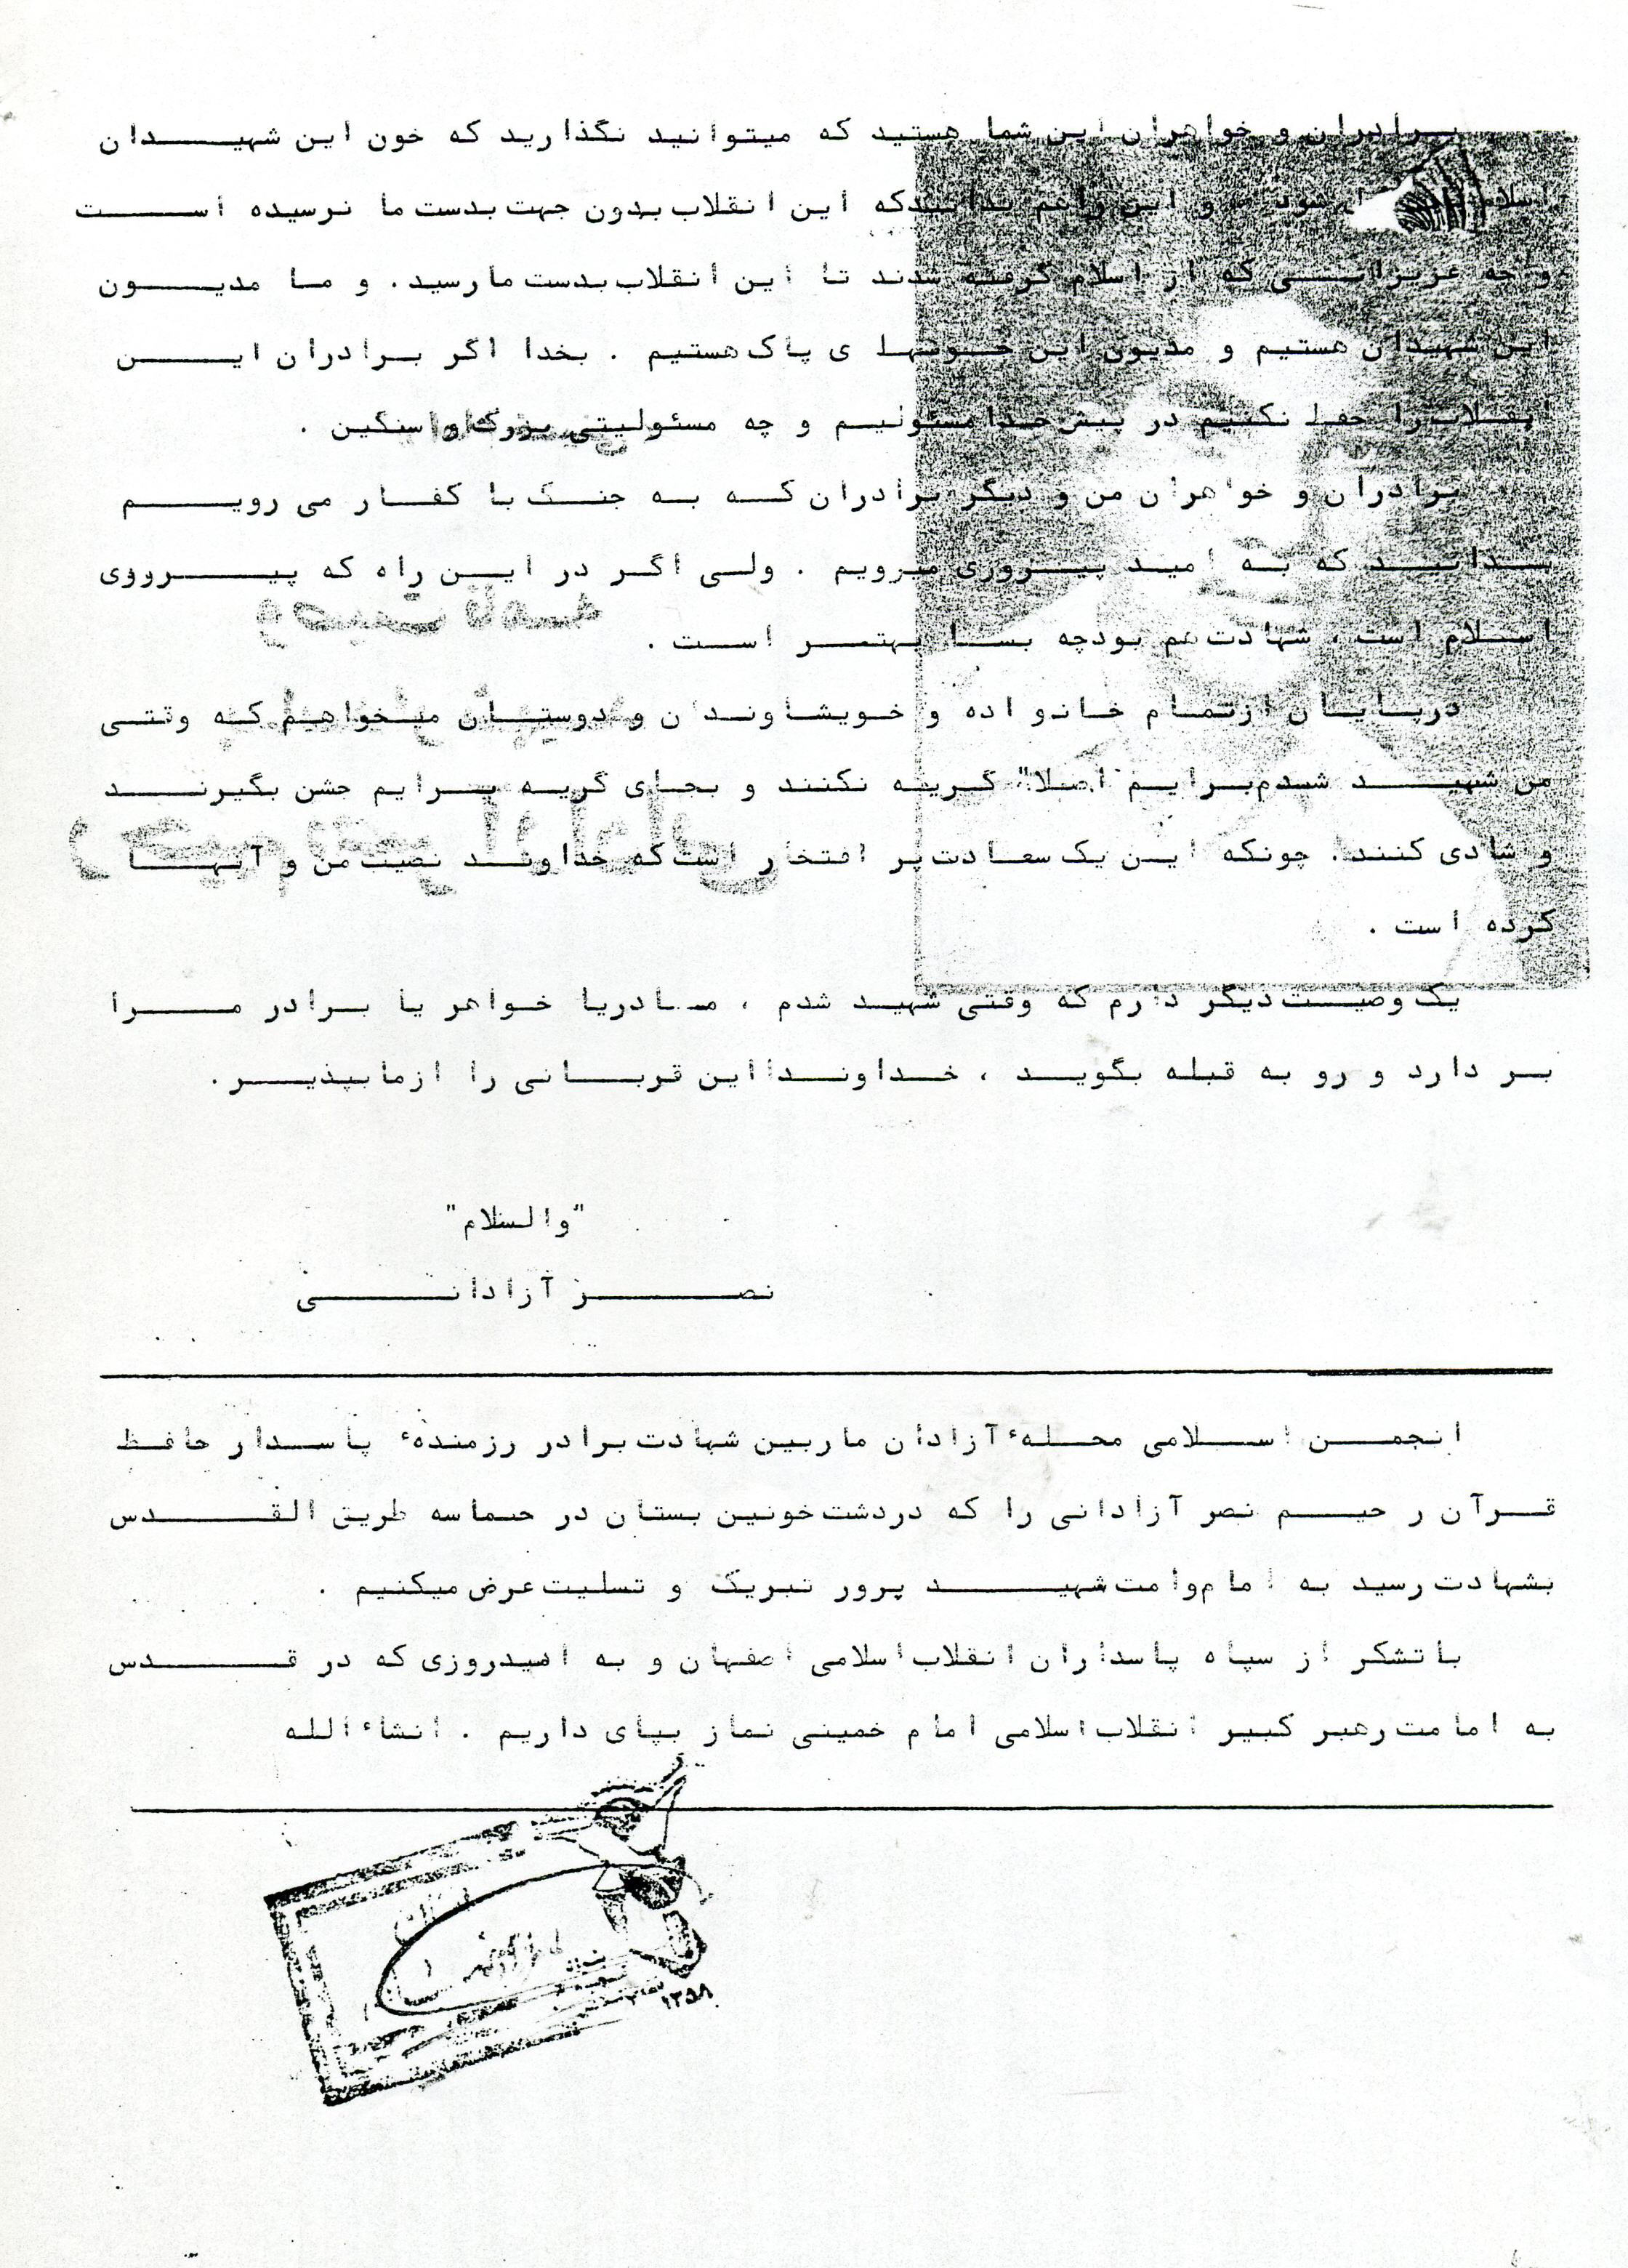 برادران و خواهران این شما هستید که میتوانید نگذارید که خون این شهیدان
اسلام شود و این را هم بدانیدکه این انقلاب بدون جهت بدست ما نرسیده است
و چه عزیزانی که از اسلام گرفته شدند تا این انقلاب بدست ما رسید. و ما مدیون
این شهیدان هستیم و مدیون این خونها ی پاک هستیم . بخدا اگر برادران این
انقلاب را حفظ نکنیم در پیش خدا مسئولیم و چه مسئولیتی بزرگ و سنگین .
برادران و خواهران من و دیگر برادران که به جنگ با کفار می رویم
بدانید که به امید پیروزی میرویم . ولی اگر در این راه که پیرووی
اسلام است ، شهادت هم بودچه بسا بهتر است .
درپایان ازتمام خانواده و خویشاوندان و دوستان میخواهیم که وقتی
من شهید شدم برایم اصلا" گریه نکنند و بجای گریه برایم جشن بگیرند
و شادی کنند. چونکه این یک سعادت پر افتخار است که خداوند نصیت من و آنها
کرده است .
یک وصیت دیگر دارم که وقتی شهید شدم ، مادریا خواهر یا برادر مرا
بر دارد و رو به قبله بگوید ، خداوندا این قربانی را ازما بپذیر.
"والسلام"
نصر آزادانی
انجمن اسلامی محلهٔ آزادان ماربین شهادت برادر رزمندهٔ پاسدار حافظ
قرآن رحیم نصر آزادانی را که دردشت خونین بستان در حماسه طریق القدس
بشهادت رسید به امام وامت شهید پرور تبریک و تسلیت عرض میکنیم .
باتشکر از سپاه پاسداران انقلاب اسلامی اصفهان و به امیدروزی که در قدس
به امامت رهبر کبیر انقلاب اسلامی امام خمینی نماز بپای داریم . انشاء الله
۱۳۵۸